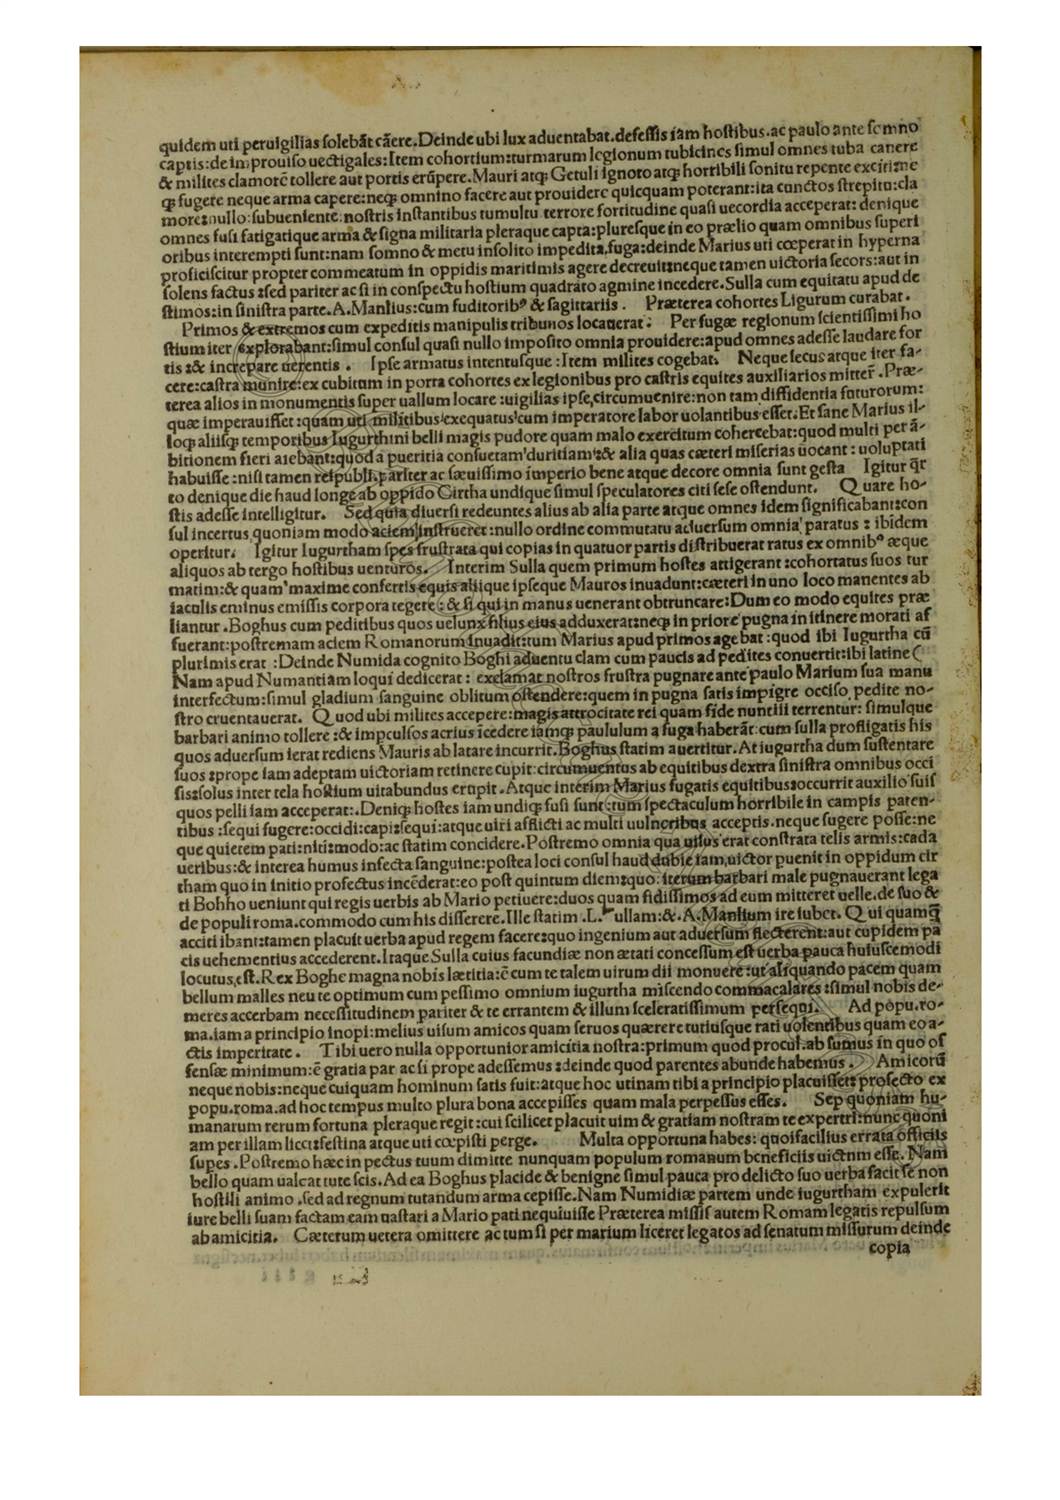 quidem uti peruigilias solebãt cãere.Deinde ubi lux aduentabat.defessis iam hostibus.ac paulo ante somno
captis:de improuiso uectigales:Item cohortium:turmarum legionum tubicines simul omnes tuba canere
& milites clamorẽ tollere aut portis erũpere.Mauri atq; Getuli ignoto atq; horribili sonitu repente exciti:ne
q; fugere neque arma capere:neq; omnino facere aut prouidere quicquam poterant:ita cunctos strepitu:cla
more:nullo:subueniente:nostris instantibus tumultu terrore fortitudine quasi uecordia acceperat: denique
omnes fusi fatigatique arma & signa militaria pleraque capta:pluresque in eo prælio quam omnibus superi
oribus interempti sunt:nam somno & metu insolito impedita,fuga:deinde Marius uti cœperat in hyperna
proficiscitur propter commeatum in oppidis maritimis agere decreuit:neque tamen uictoria secors:aut in
solens factus :sed pariter ac si in conspectu hostium quadrato agmine incedere.Sulla cum equitatu apud de
stimos:in sinistra parte.A.Manlius:cum fuditorib⁹ & sagittariis . Præterea cohortes Ligurum curabat.
Primos & extremos cum expeditis manipulis tribunos locauerat: Per fugæ regionum scientissimi ho
stium iter explorabant:simul consul quasi nullo imposito omnia prouidere:apud omnes adesse laudare for
tis :& increpare uerentis . Ipse armatus intentusque :Item milites cogebat. Neque secus atque iter fa-
cere:castra munire:ex cubitum in porta cohortes ex legionibus pro castris equites auxiliarios mitter̃ .Præ-
terea alios in monumentis super uallum locare :uigilias ipse,circumuenire:non tam diffidentia futurorum:
quæ imperauisset :quam uti militibus exequatus cum imperatore labor uolantibus esset.Et sane Marius il-
loq; aliisq; temporibus Iugurthini belli magis pudore quam malo exercitum cohercebat:quod multi per ã-
bitionem fieri aiebant:quod a pueritia consuetam duritiam:& alia quas cæteri miserias uocant: uoluptati
habuisse:nisi tamen reipubli.pariter ac sæuissimo imperio bene atque decore omnia sunt gesta Igitur q̃r
to denique die haud longe ab oppido Cirtha undique simul speculatores citi sese ostendunt. Quare ho-
stis adesse intelligitur. Sed quia diuersi redeuntes alius ab alia parte atque omnes idem significabant:con
sul incertus quoniam modo aciem instrueret :nullo ordine commutatu aduersum omnia paratus : ibidem
operitur. Igitur Iugurtham spes frustrata qui copias in quatuor partis distribuerat ratus ex omnib⁹ æque
aliquos ab tergo hostibus uenturos. Interim Sulla quem primum hostes attigerant :cohortatus suos tur
matim:& quam maxime confertis equis aliique ipseque Mauros inuadunt:cæteri in uno loco manentes ab
iaculis eminus emissis corpora tegere : & si qui in manus uenerant obtruncare:Dum eo modo equites præ
liantur .Boghus cum peditibus quos uelunx filius eius adduxerat:neq; in priore pugna in itinere morati af
fuerant:postremam aciem Romanorum inuadit:tum Marius apud primos agebat :quod ibi Iugurtha cũ
plurimis erat :Deinde Numida cognito Boghi aduentu clam cum paucis ad pedites conuertit:ibi latine (
Nam apud Numantiam loqui dedicerat : exclamat nostros frustra pugnare ante paulo Marium sua manu
interfectum:simul gladium sanguine oblitum ostendere:quem in pugna satis impigre occiso pedite no-
stro cruentauerat. Quod ubi milites accepere:magis attrocitate rei quam fide nuntiii terrentur: simulque
barbari animo tollere :& impculsos acrius icedere iamq; paululum a fuga haberãt:cum sulla profligatis his
quos aduersum ierat rediens Mauris ab latare incurrit.Boghus statim auertitur.At iugurtha dum sustentare
suos :prope iam adeptam uictoriam retinere cupit:circumuentus ab equitibus dextra sinistra omnibus occi
sis:solus inter tela hostium uitabundus erupit .Atque interim Marius fugatis equitibus:occurrit auxilio suis
quos pelli iam acceperat:.Deniq; hostes iam undiq; fusi sunt:tum spectaculum horribile in campis paten-
tibus :sequi fugere:occidi:capi:sequi:atque uiri afflicti ac multi uulneribus acceptis.neque fugere posse:ne
que quietem pati:niti:modo:ac statim concidere.Postremo omnia qua uisus erat constrata telis armis:cada
ueribus:& interea humus infecta sanguine:postea loci consul haud dubie iam,uictor puenit in oppidum cir
tham quo in initio profectus incẽderat:eo post quintum diem:quo iterum barbari male pugnauerant lega
ti Bohho ueniunt qui regis uerbis ab Mario petiuere:duos quam fidissimos ad eum mitteret uelle.de suo &
de populi roma.commodo cum his disserere.Ille statim .L. ullam:&.A.Manlium ire iubet. Qui quamq̃
acciti ibant:tamen placuit uerba apud regem facere:quo ingenium aut aduersum flecterent:aut cupidem pa
cis uehementius accederent.Itaque Sulla cuius facundiæ non ætati concessum est uerba pauca huiuscemodi
locutus,est.Rex Boghe magna nobis lætitia:ẽ cum te talem uirum dii monuere:ut aliquando pacem quam
bellum malles neu te optimum cum pessimo omnium iugurtha miscendo commacalares :simul nobis de-
meres accerbam necessitudinem pariter & te errantem & illum sceleratissimum persequi. Ad popu.ro-
ma.iam a principio inopi:melius uisum amicos quam seruos quærere tutiusque rati uolentibus quam eo a-
ctis imperitate . Tibi uero nulla opportunior amicitia nostra:primum quod procul.ab sumus in quo of
fensæ minimum:ẽ gratia par ac si prope adessemus :deinde quod parentes abunde habemus . Amicorũ
neque nobis:neque cuiquam hominum satis fuit:atque hoc utinam tibi a principio placuisset: profecto ex
popu.roma.ad hoc tempus multo plura bona accepisses quam mala perpessus esses. Sep quoniam hu-
manarum rerum fortuna pleraque regit :cui scilicet placuit uim & gratiam nostram te expertri:nunc quoni
am per illam licet:festina atque uti cœpisti perge. Multa opportuna habes: quoifacilius errata officiis
supes .Postremo hæc in pectus tuum dimitte nunquam populum romanum beneficiis uictum esse. Nam
bello quam ualcat tute scis.Ad ea Boghus placide & benigne simul pauca pro delicto suo uerba facit se non
hostili animo .sed ad regnum tutandum arma cepisse.Nam Numidiæ partem unde iugurtham expulerit
iure belli suam factam eam uastari a Mario pati nequiuisse Præterea missis autem Romam legatis repulsum
ab amicitia. Cæterum uetera omittere ac tum si per marium liceret legatos ad senatum missurum deinde
copia